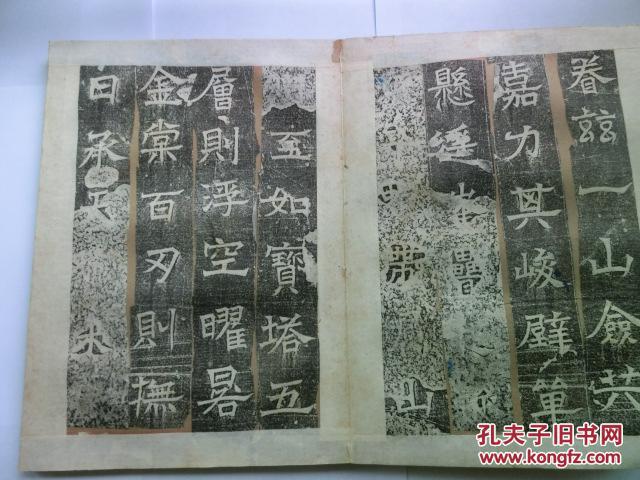 眷茲一山僉共
嘉力其峻壁單
懸
弗山
至如寶塔五
層則浮空曜晷
金棠百刃則撫
日承天未
孔夫子旧书网
WWW.KONGFZ.COM